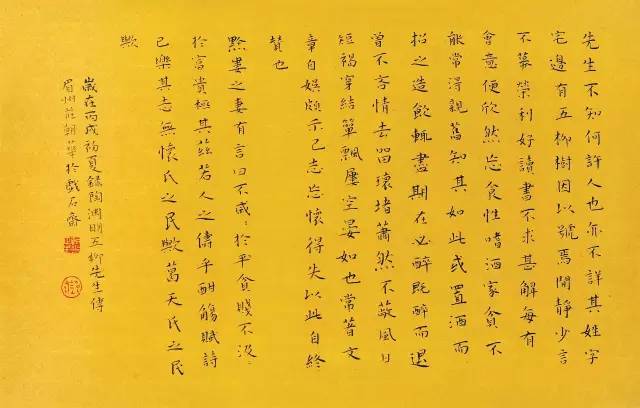 先生不知何許人也亦不詳其姓字
宅邊有五柳樹因以號焉閒靜少言
不慕榮利好讀書不求甚解每有
會意便欣然忘食性嗜酒家貧不
能常得親舊知其如此或置酒而
招之造飲輒盡期在必醉既醉而退
曾不吝情去留環堵蕭然不蔽風日
短褐穿結簞瓢屢空晏如也常著文
章自娛頗示己志忘懷得失以此自終
贊也
黔婁之妻有言曰不戚：於平貧賤不汲：
於富貴極其茲若人之儔乎酣觴賦詩
已樂其志無懷氏之民歟葛天氏之民
歟
歲在丙戌初夏錄陶淵明五柳先生傳
眉州莊朝華於戲石齋